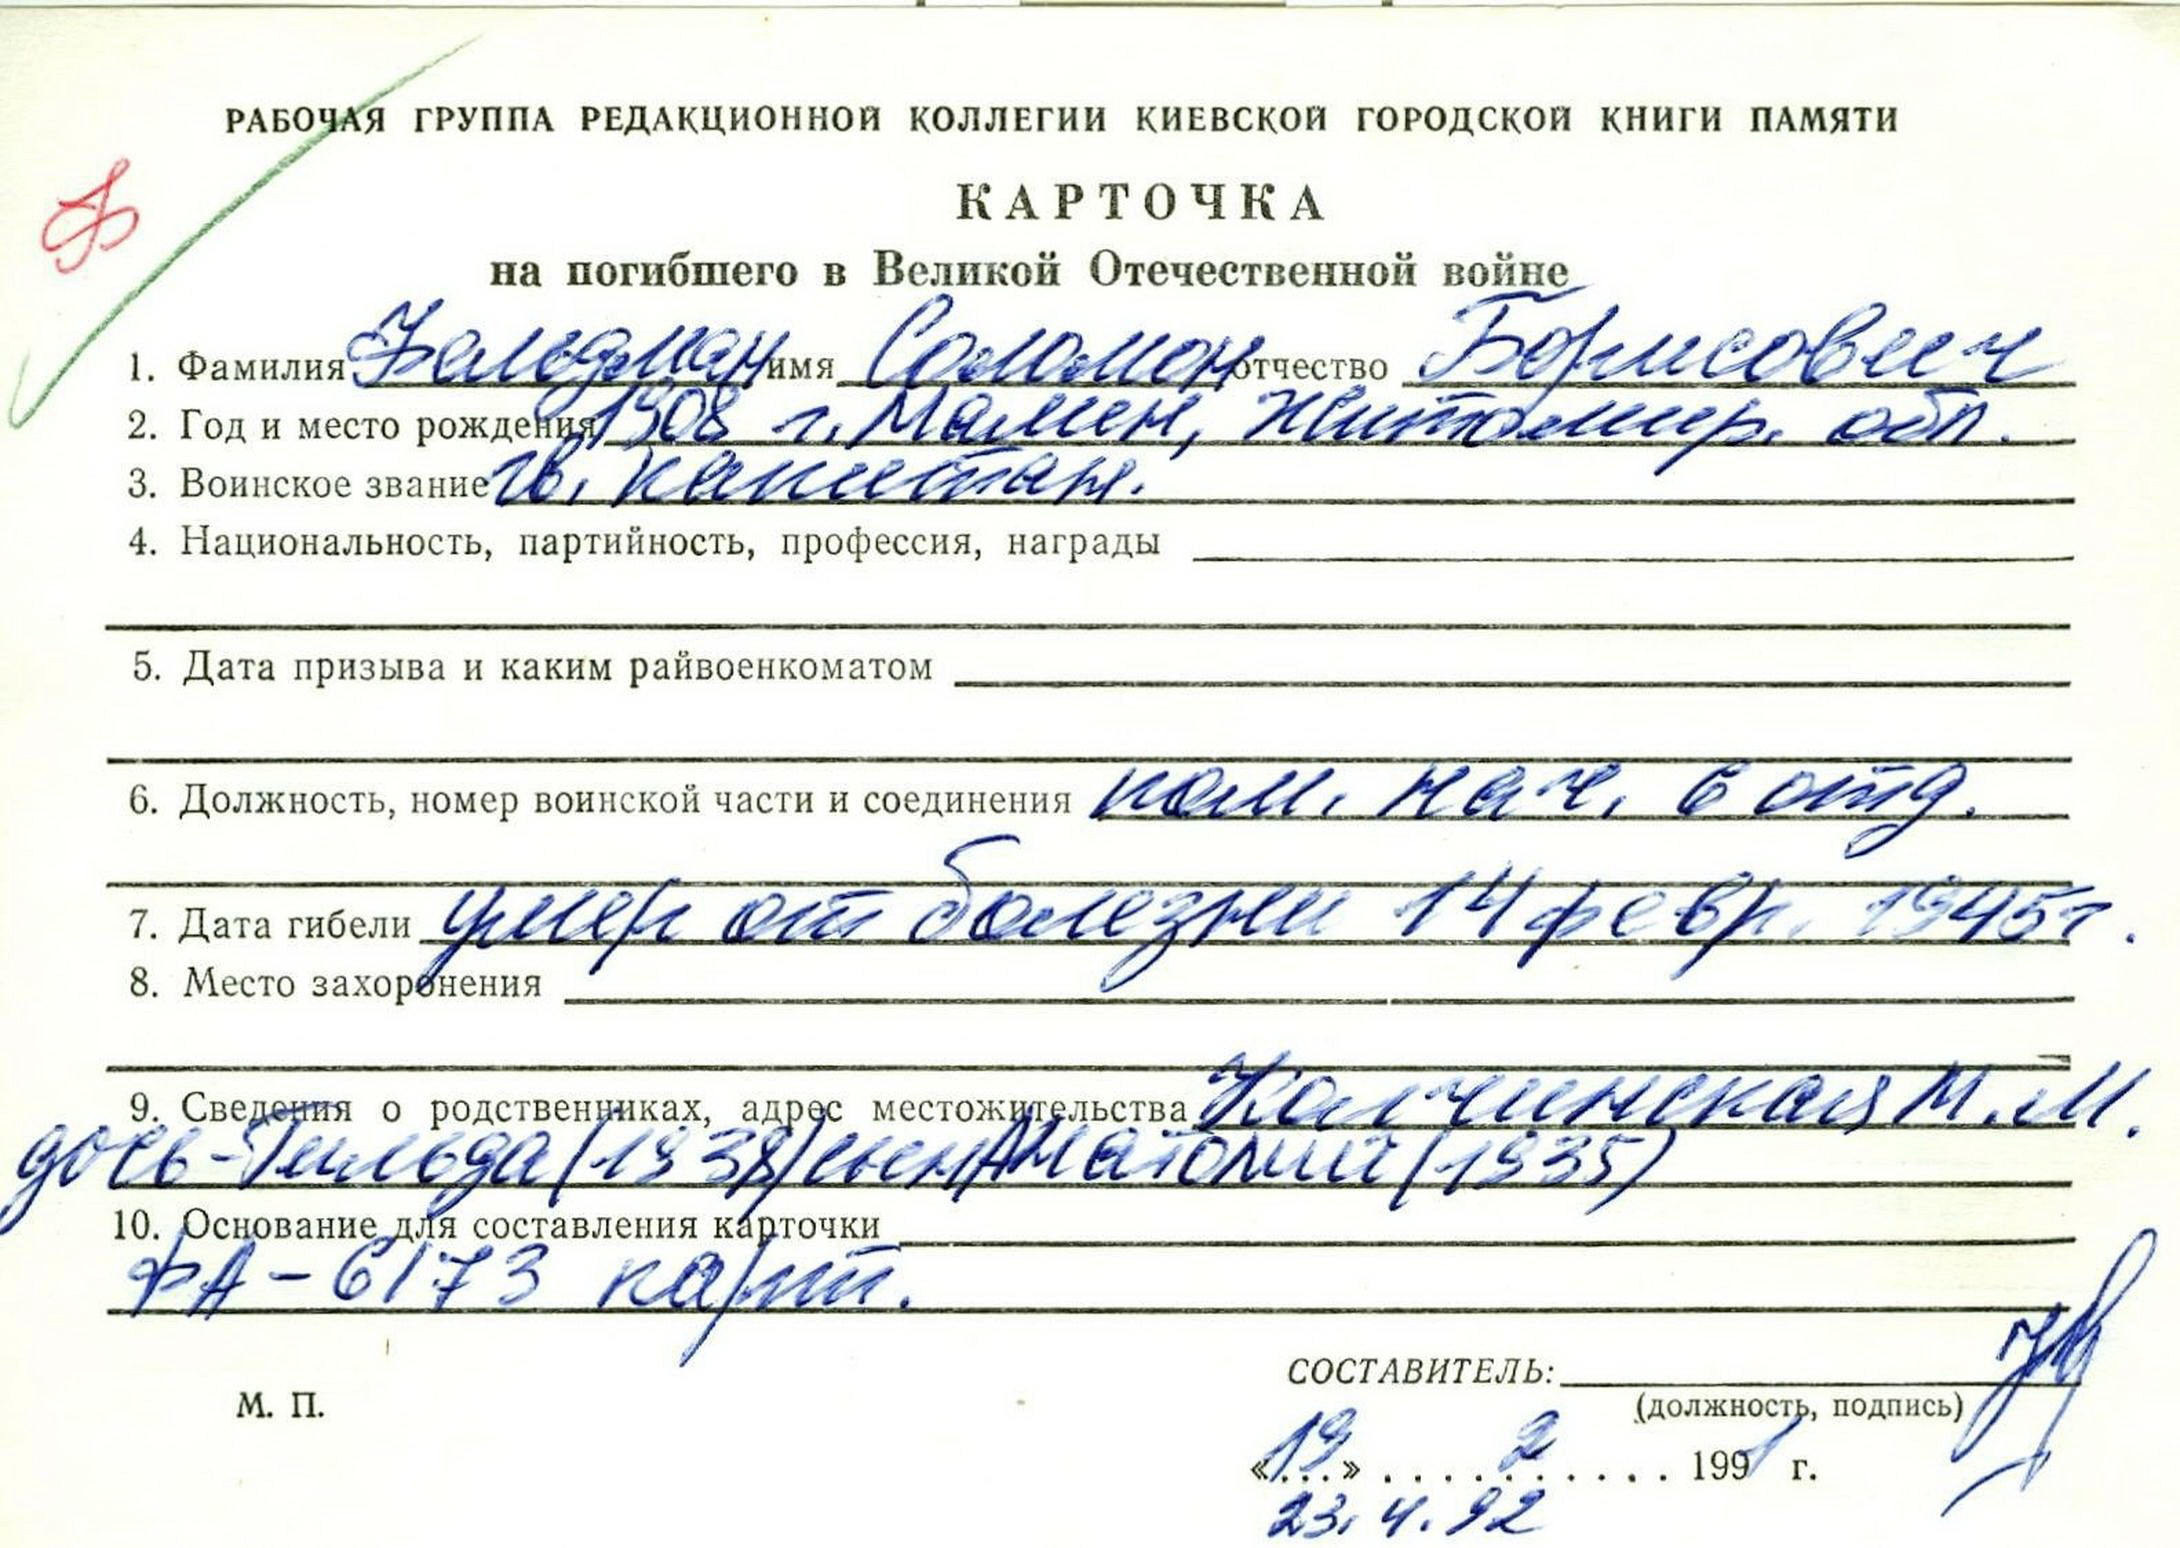 РАБОЧАЯ ГРУППА РЕДАКЦИОННОЙ КОЛЛЕГИИ КИЕВСКОЙ ГОРОДСКОЙ КНИГИ ПАМЯТИ
Ф
КАРТОЧКА
на погибшего в Великой Отечественной войне
1. Фамилия Фельдман имя Соломон отчество Борисович
2. Год и место рождения 1908 г. Малин, Житомир. обл.
3. Воинское звание гв. капитан.
4. Национальность, партийность, профессия, награды
5. Дата призыва и каким райвоенкоматом
6. Должность, номер воинской части и соединения пом. нач. 6 отд.
7. Дата гибели умер от болезни 14 февр. 1945 г.
8. Место захоронения
9. Сведения о родственниках, адрес местожительства Колчинская М.М.
дочь-Гильда (1938) сын Анатолий (1935)
10. Основание для составления карточки
ФА-6173 карт.
СОСТАВИТЕЛЬ:
М. П.
(должность, подпись)
«19» 2 1991 г.
23.4.92